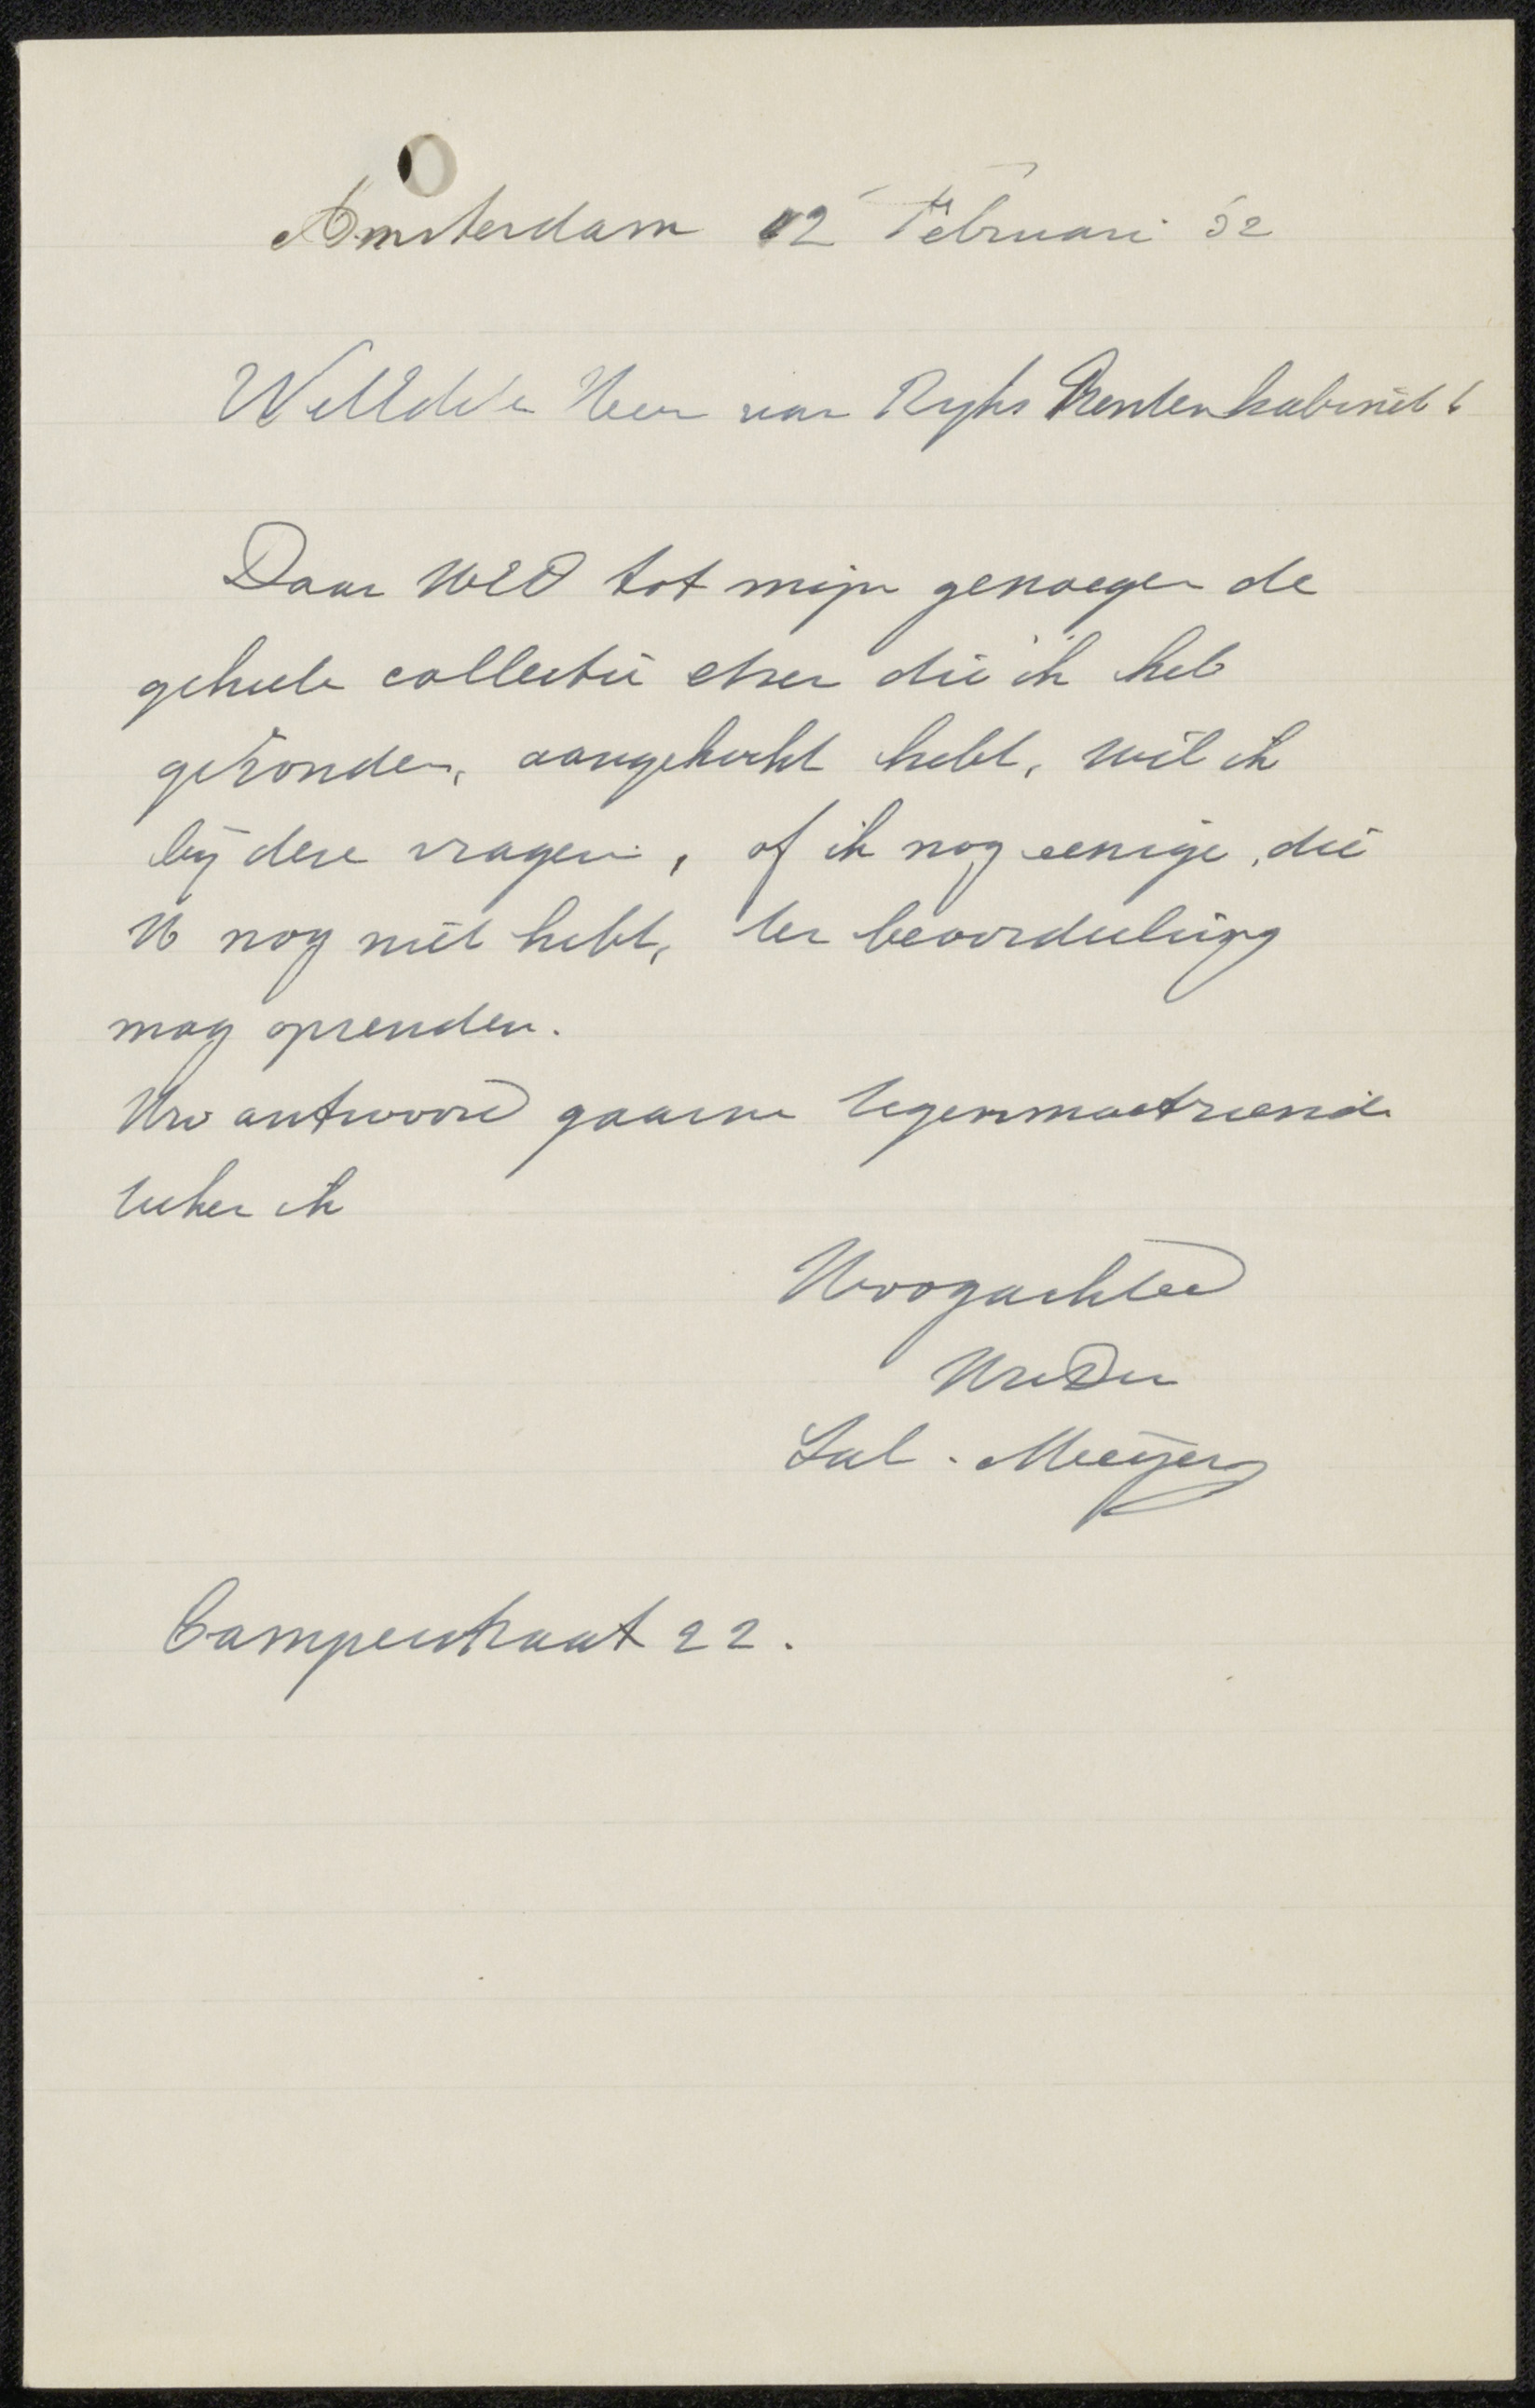 Amsterdam 12 Februari 52
WelEd. Heer van Ryks Prentenkabinet!
Daar UED tot mijn genoegen de
geheele collectie etsen die ik heb
gezonden, aangekocht hebt, wil ik
bij deze vragen, of ik nog eenige, die
U nog niet hebt, ter beoordeeling
mag opzenden.
Uw antwoord gaarne tegemoetziend
teken ik
Hoogachtend
Uw Dn
Sal. Meijer
Camperstraat 22.